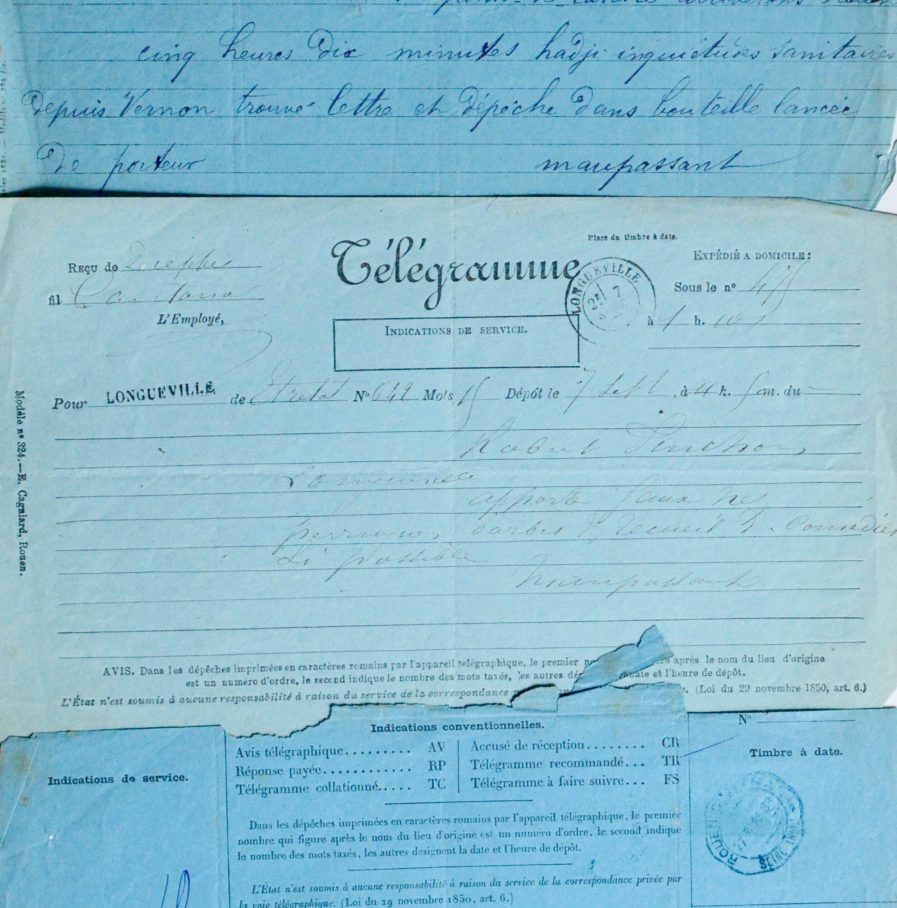 cinq heures dix minutes hadji inquiétudes sanitaires
depuis Vernon trouvé lettre et dépêche dans bouteille lancée
de porteur maupassant
Télégramme
Place du timbre à date.
Reçu de Dieppe
fil
L'Employé,
INDICATIONS DE SERVICE.
LONGUEVILLE
EXPÉDIÉ A DOMICILE:
Sous le nº
à h.
Pour LONGUEVILLE de Etretat Nº 642 Mots 15 Dépôt le 7 Sept, à 4 h. 5 m. du
Robert Pinchon
Longueville
apporte faux nez
perruques barbes
si possible
maupassant
Modèle nº 324.—E. Cagniard, Rouen.
AVIS. Dans les dépêches imprimées en caractères romains par l'appareil télégraphique, le premier après le nom du lieu d'origine
est un numéro d'ordre, le second indique le nombre des mots taxés, les autres date et l'heure de dépôt.
L'État n'est soumis à aucune responsabilité à raison du service de la correspondance (Loi du 29 novembre 1850, art. 6.)
Indications de service.
Indications conventionnelles.
Avis télégraphique......... AV
Réponse payée............ RP
Télégramme collationné..... TC
Accusé de réception........ CR
Télégramme recommandé... TR
Télégramme à faire suivre... FS
Dans les dépêches imprimées en caractères romains par l'appareil télégraphique, le premier
nombre qui figure après le nom du lieu d'origine est un numéro d'ordre, le second indique
le nombre des mots taxés, les autres désignent la date et l'heure de dépôt.
L'État n'est soumis à aucune responsabilité à raison du service de la correspondance privée par
la voie télégraphique. (Loi du 29 novembre 1850, art. 6.)
Nº
Timbre à date.
ROUEN